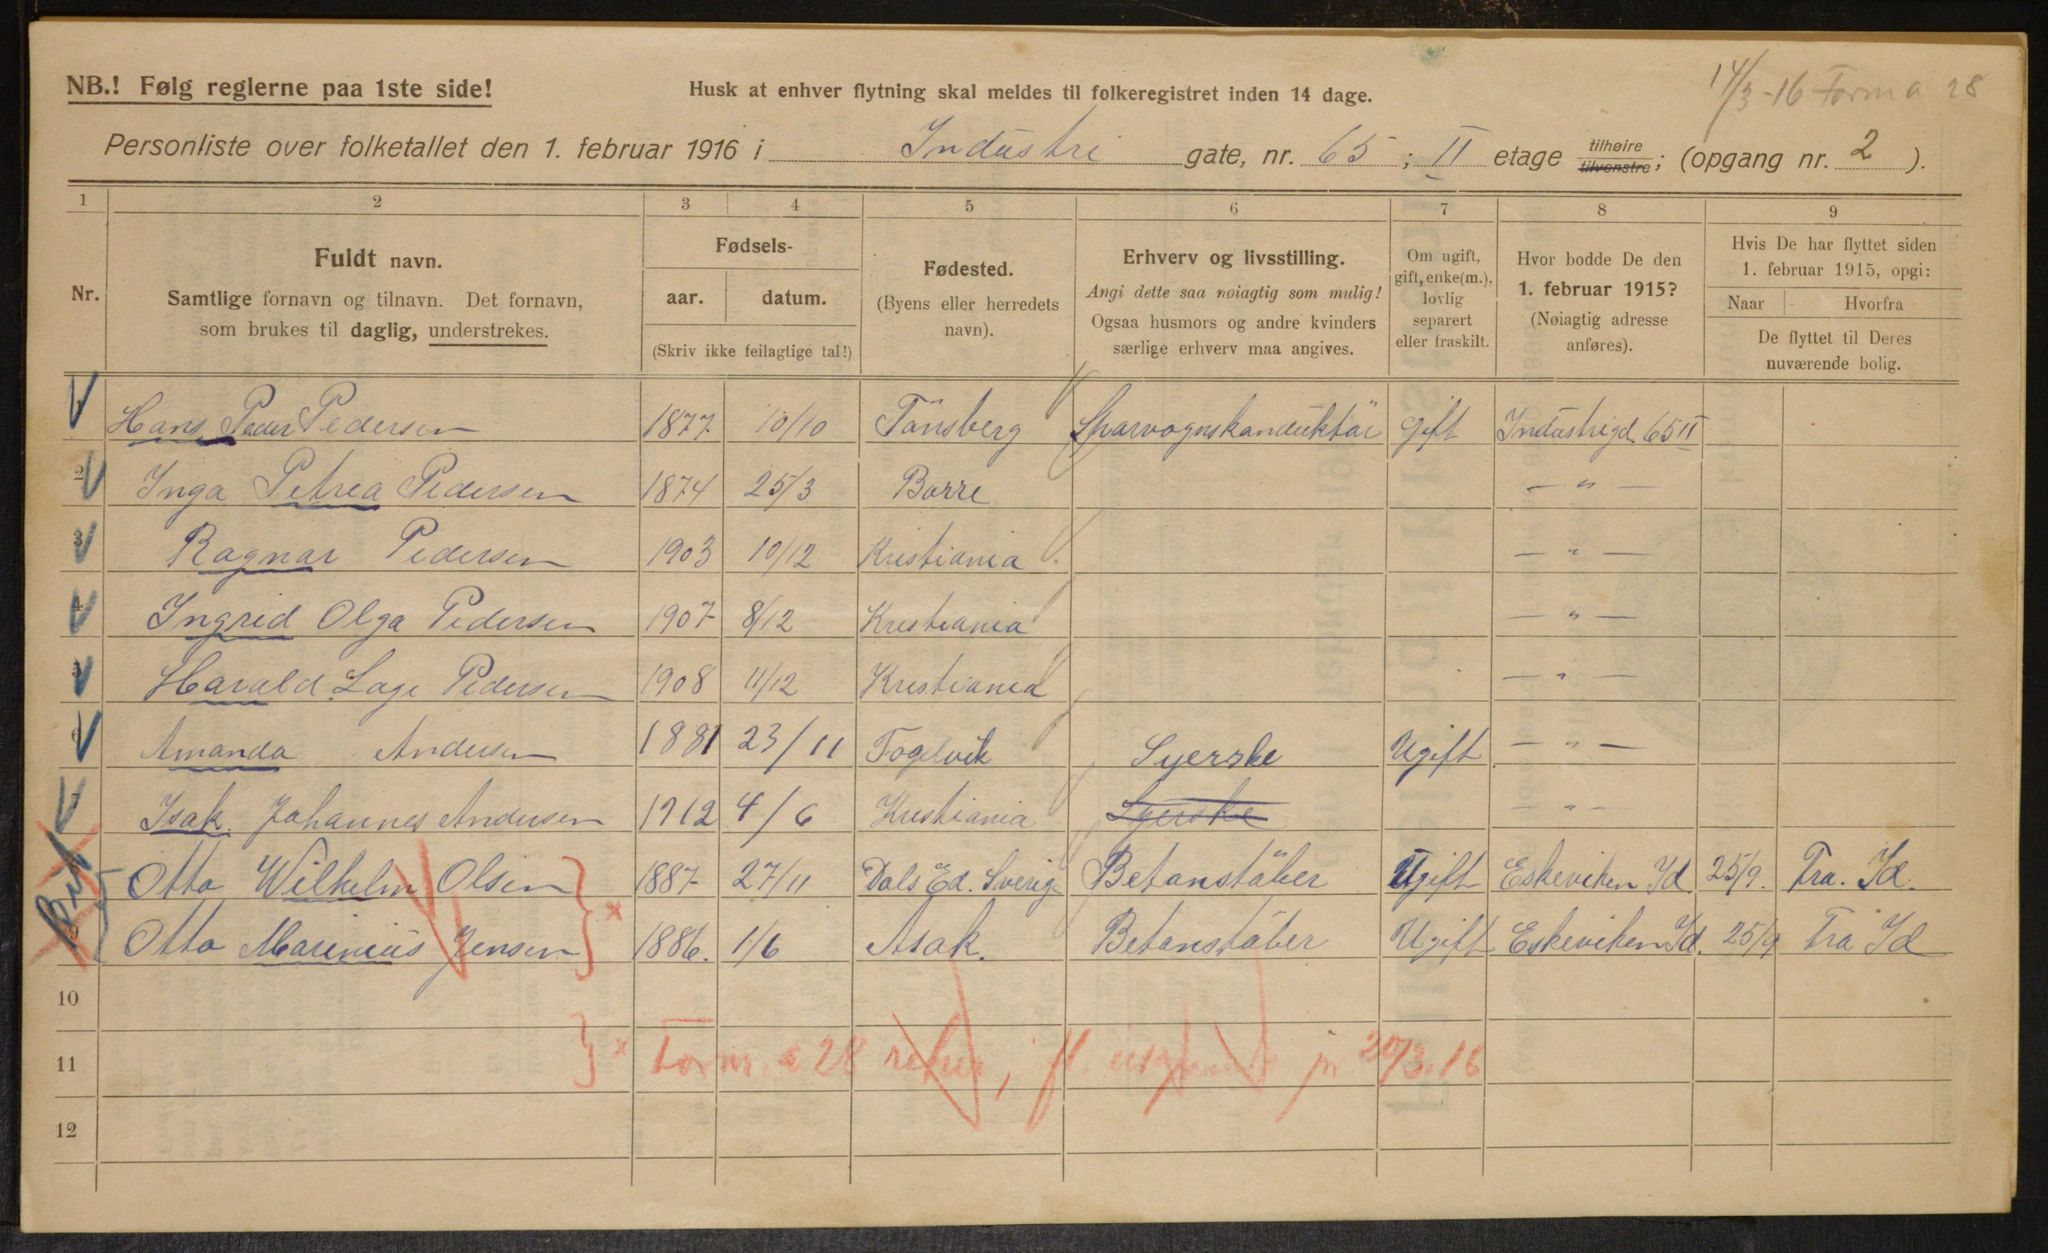 14/3-16 Form a 28
NB.! Følg reglerne paa 1ste side!
Husk at enhver flytning skal meldes til folkeregistret inden 14 dage.
Personliste over folketallet den 1. februar 1916 i Industri gate, nr. 65 ; II etage tilhøire tilvenstre; (opgang nr. 2 ).
1 2 3 4 5 6 7 8 9
Nr.
Fuldt navn.
Samtlige fornavn og tilnavn. Det fornavn,
som brukes til daglig, understrekes.
Fødsels-
aar. datum.
(Skriv ikke feilagtige tal!)
Fødested.
(Byens eller herredets
navn).
Erhverv og livsstilling.
Angi dette saa nøiagtig som mulig!
Ogsaa husmors og andre kvinders
særlige erhverv maa angives.
Om ugift,
gift, enke(m.),
lovlig
separert
eller fraskilt.
Hvor bodde De den
1. februar 1915?
(Nøiagtig adresse
anføres).
Hvis De har flyttet siden
1. februar 1915, opgi:
Naar Hvorfra
De flyttet til Deres
nuværende bolig.
1 Hans Peder Pedersen 1877 10/10 Tönsberg Sporvognskonduktör gift Industrigd. 65 II
2 Inga Petrea Pedersen 1874 25/3 Borre — " —
3 Ragnar Pedersen 1903 10/12 Kristiania — " —
4 Ingrid Olga Pedersen 1907 8/12 Kristiania — " —
5 Harald Lage Pedersen 1908 11/12 Kristiania — " —
6 Amanda Andersen 1881 23/11 Fogelvik Syerske Ugift — " —
7 Isak Johannes Andersen 1912 4/6 Kristiania Syerske — " —
Otto Wilhelm Olsen 1887 27/11 Dals Ed. Sverig Betonstöber Ugift Eskeviken Id 25/9. Fra. Id.
9 Otto Marinius Jensen 1886. 1/6 Asak. Betonstöber Ugift Eskeviken Id. 25/9 Fra Id
10
11 x Form. a 28 retur, fl. 20/3.16
12